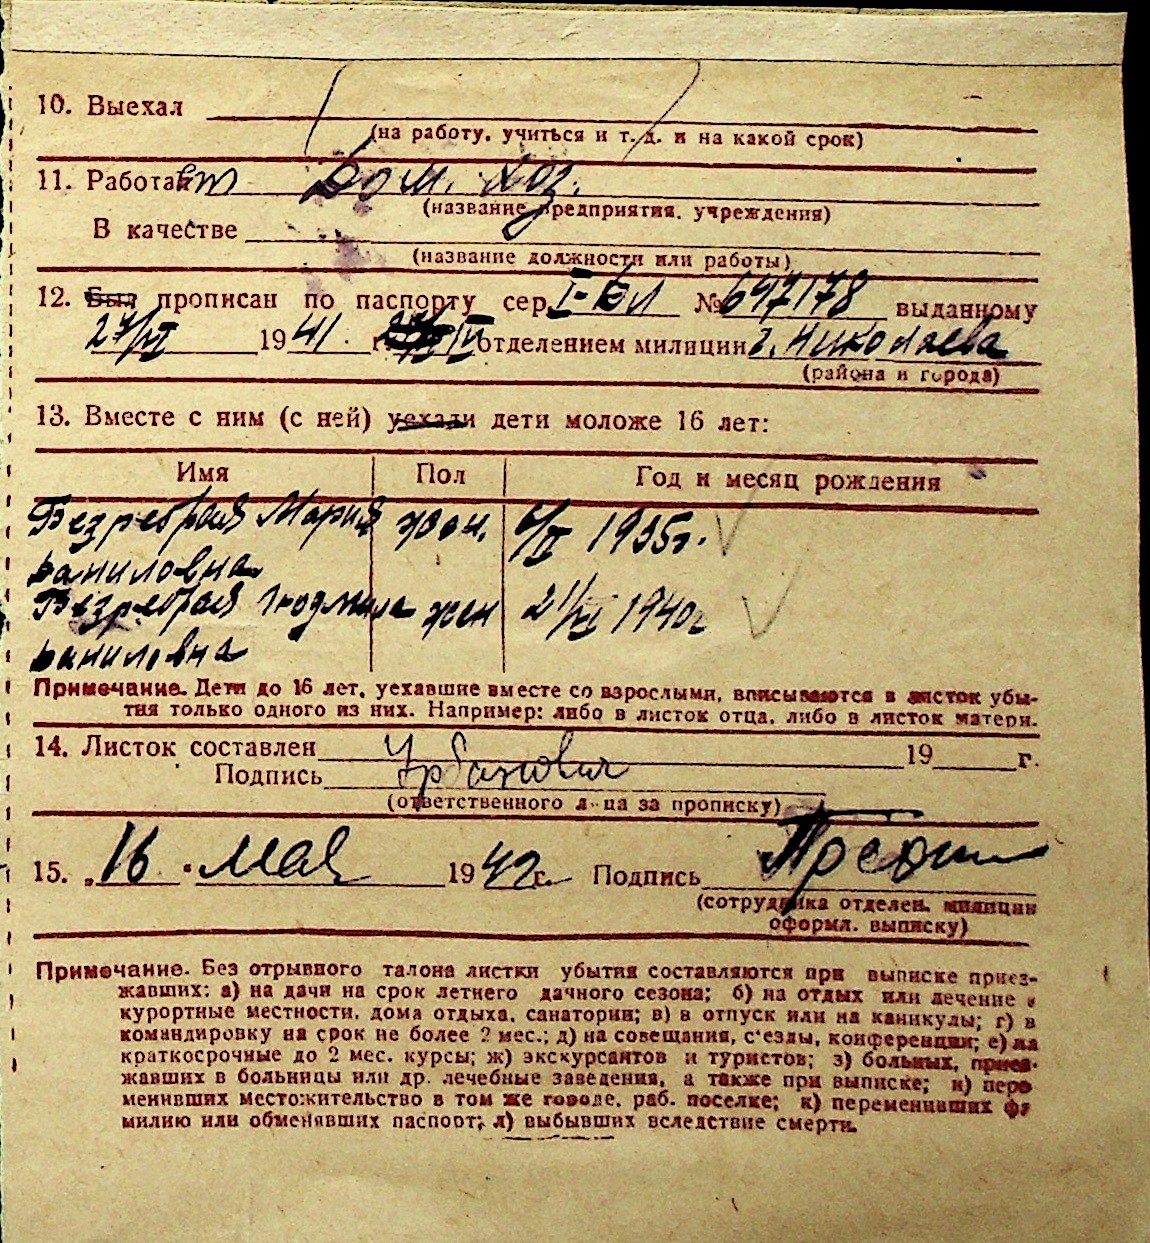 10. Выехал
(на работу, учиться и т. д. и на какой срок)
11. Работает Дом. Хоз.
(название предприятия, учреждения)
В качестве
(название должности или работы)
12. Был прописан по паспорту сер. № 647178 выданному
27/VI 1941. г. IV отделением милиции г. Николаева
(района и города)
13. Вместе с ним (с ней) уехали дети моложе 16 лет:
Имя Пол Год и месяц рождения
Мария жен. 1935г.
Даниловна
Людмила жен 1940г
Даниловна
Примечание. Дети до 16 лет, уехавшие вместе со взрослыми, вписываются в листок убы-
тия только одного из них. Например: либо в листок отца, либо в листок матери.
14. Листок составлен 19 г.
Подпись Урбанович
(ответственного лица за прописку)
15. „16 " мая 1942 г. Подпись
(сотрудника отделен. милиции
оформл. выписку)
Примечание. Без отрывного талона листки убытия составляются при выписке приез-
жавших: а) на дачи на срок летнего дачного сезона; б) на отдых или лечение в
курортные местности, дома отдыха, санатории; в) в отпуск или на каникулы; г) в
командировку на срок не более 2 мес.; д) на совещания, с'езды, конференции; е) на
краткосрочные до 2 мес. курсы; ж) экскурсантов и туристов; з) больных, приез-
жавших в больницы или др. лечебные заведения, а также при выписке; и) пере
менивших местожительство в том же городе, раб. поселке; к) переменивших фа
милию или обменявших паспорт; л) выбывших вследствие смерти.